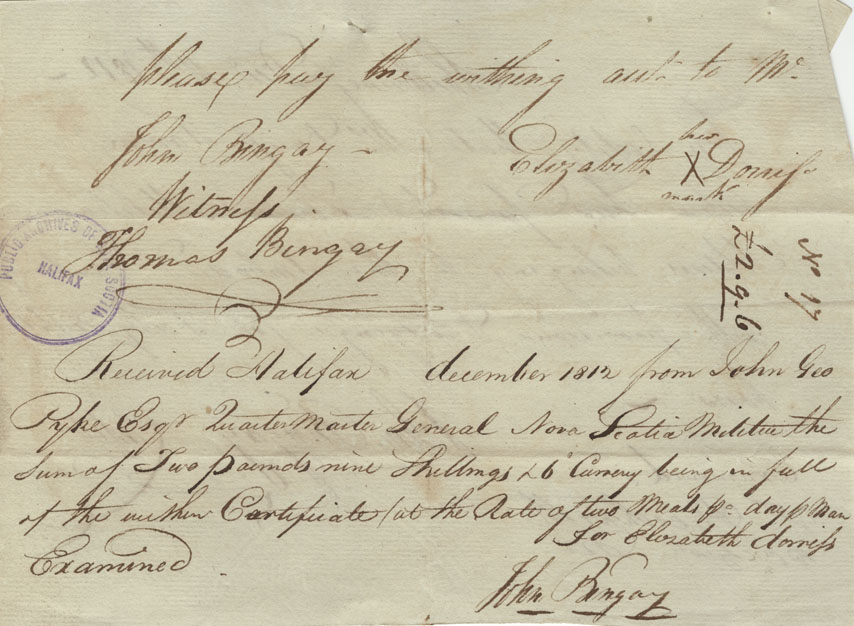 please pay the withing amt. to Mr.
John Bingay —
Elizabeth her X mark Dorriss
Witness
Thomas Bingay
PUBLIC ARCHIVES OF SCOTIA
HALIFAX
No 17
£2.9.6
Received Halifax december 1812 from John Geo
Pyke Esqr Quarter Master General Nova Scotia Militia the
Sum of Two pounds nine Shillings & 6d Currency being in full
of the within Certificate (at the Rate of two Meals pr day p Man
For Elizabeth dorriss
Examined
John Bingay